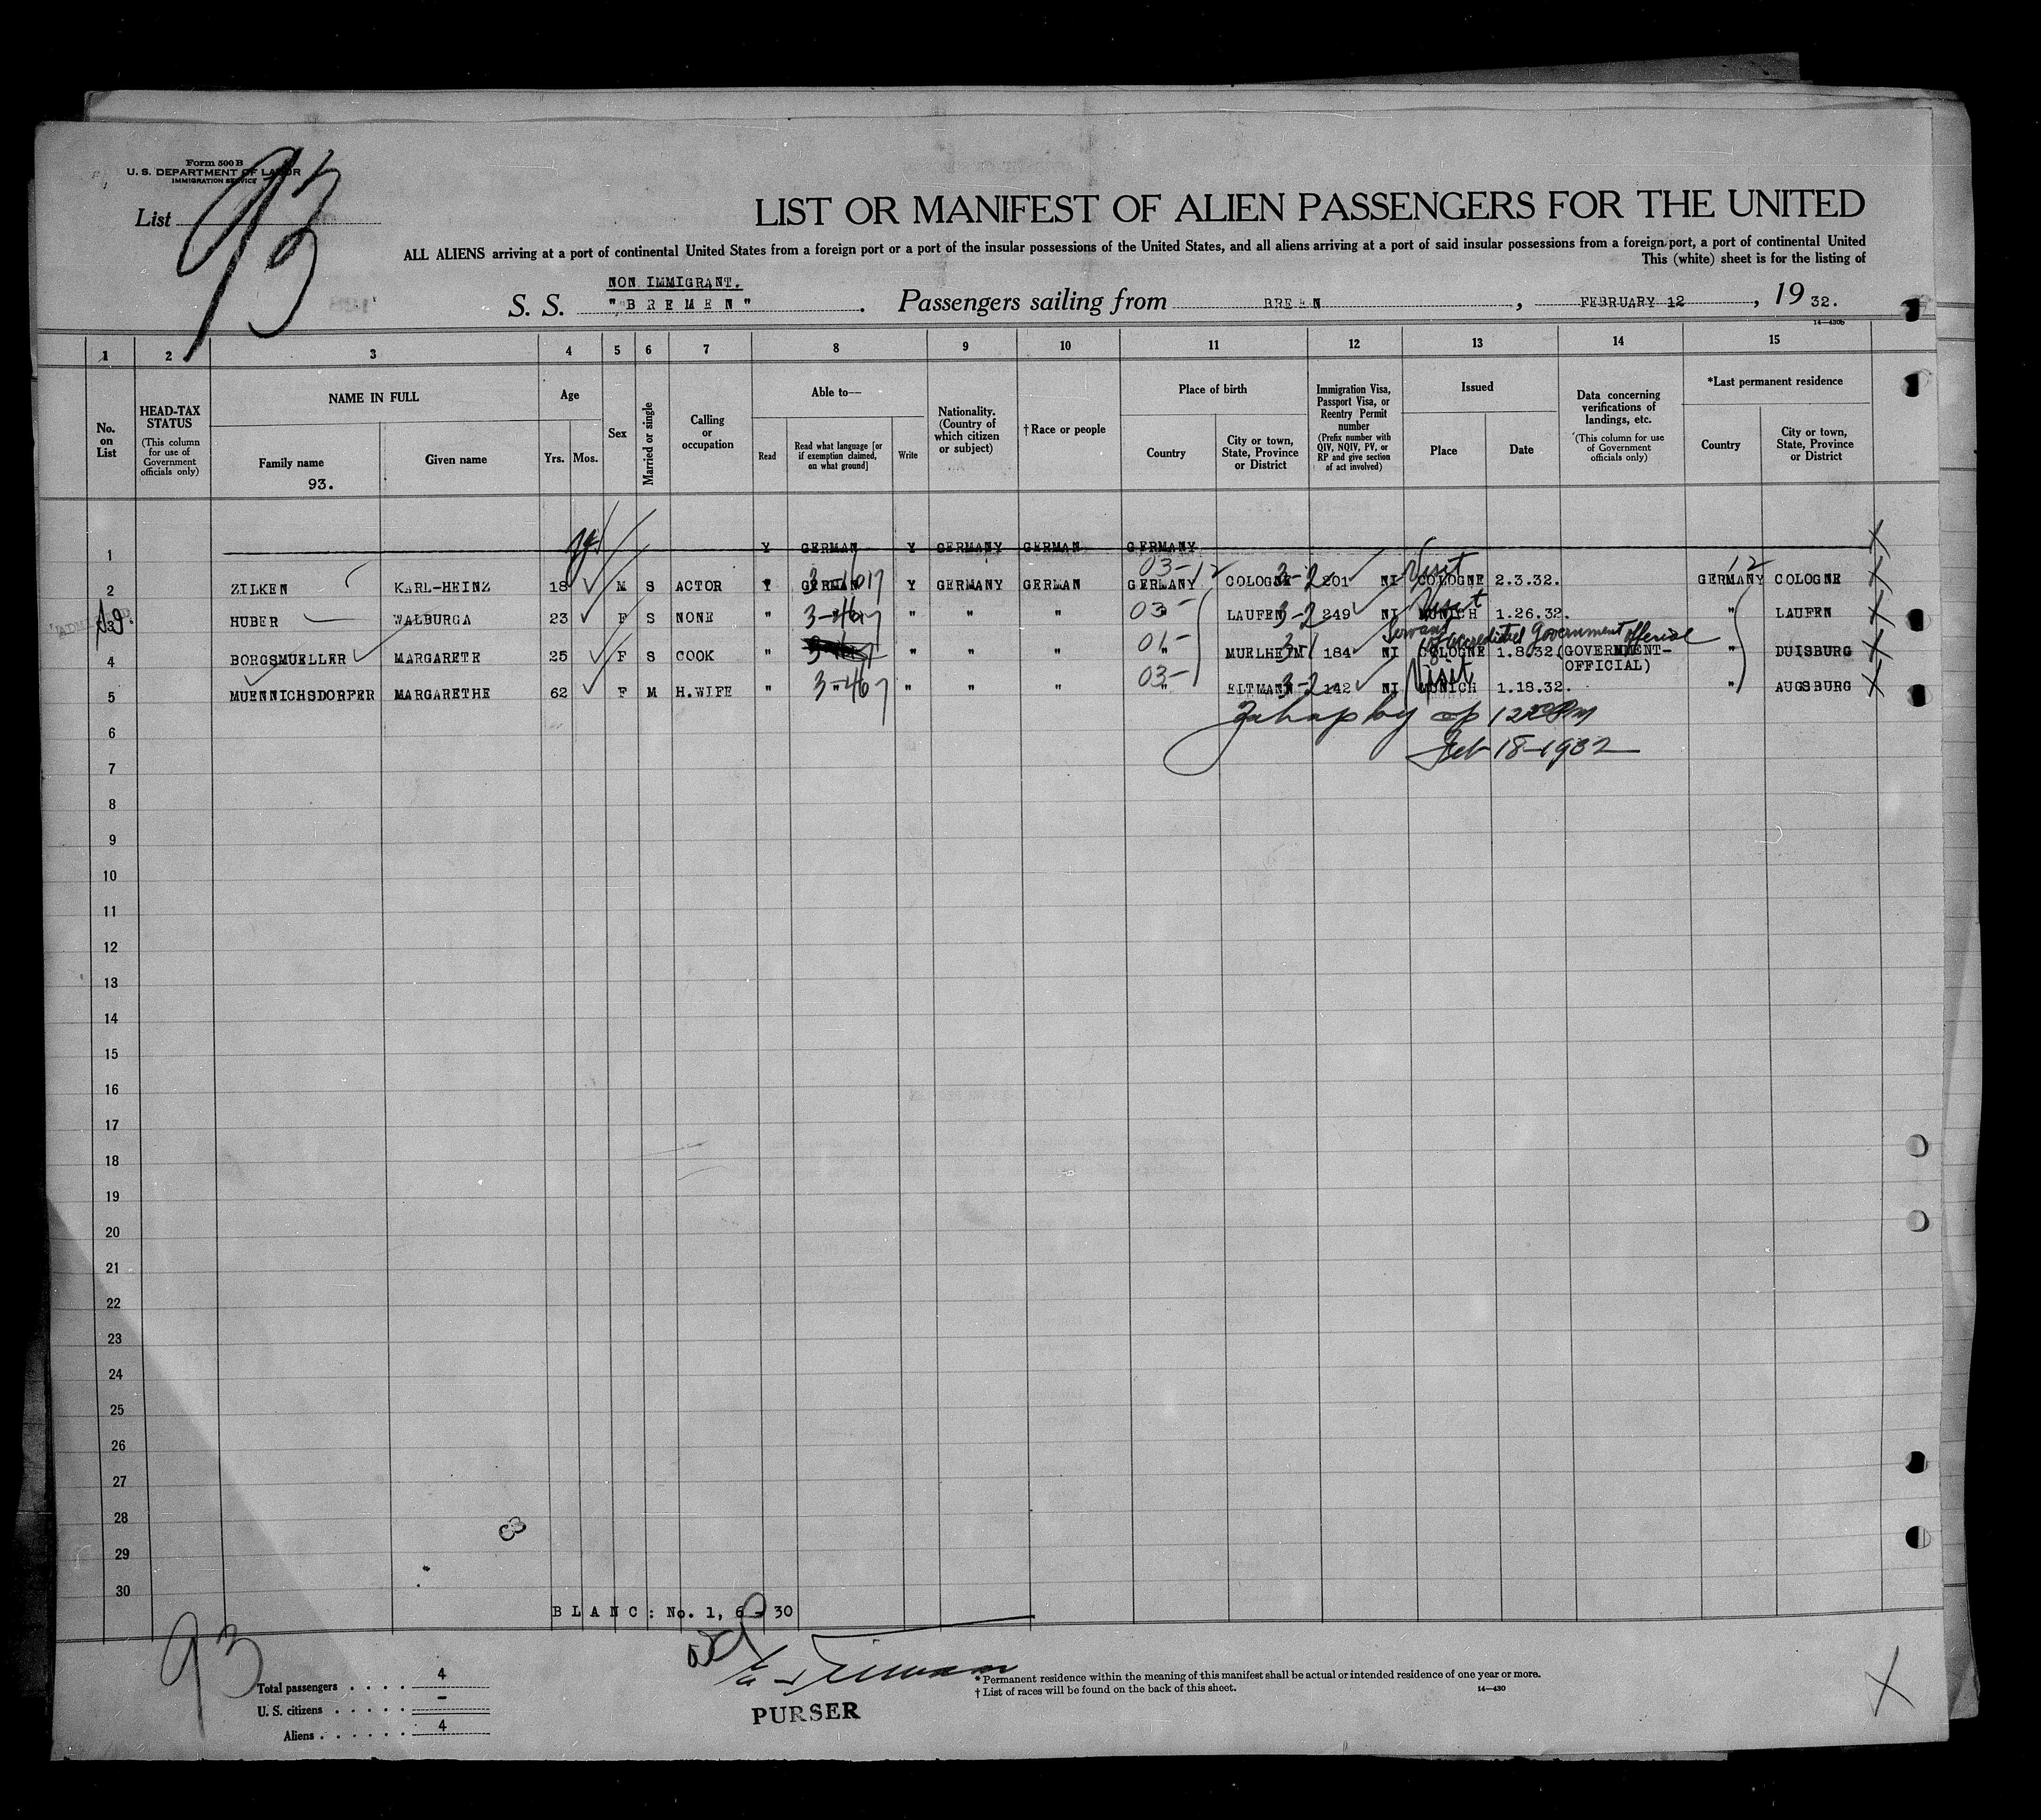 Form 500 B
U. S. DEPARTMENT OF LABOR
IMMIGRATION SERVICE
List 93
LIST OR MANIFEST OF ALIEN PASSENGERS FOR THE UNITED
ALL ALIENS arriving at a port of continental United States from a foreign port or a port of the insular possessions of the United States, and all aliens arriving at a port of said insular possessions from a foreign port, a port of continental United
This (white) sheet is for the listing of
NON IMMIGRANT.
S. S. "BREMEN". Passengers sailing from BRE EN, FEBRUARY 12, 19 32.
14—430b
1 2 3 4 5 6 7 8 9 10 11 12 13 14 15
No. on List
HEAD-TAX STATUS
(This column for use of Government officials only)
NAME IN FULL
Family name
93.
Given name
Age
Yrs. Mos.
Sex
Married or single
Calling or occupation
Able to—
Read
Read what language [or if exemption claimed, on what ground]
Write
Nationality. (Country of which citizen or subject)
†Race or people
Place of birth
Country
City or town, State, Province or District
Immigration Visa, Passport Visa, or Reentry Permit number
(Prefix number with QIV, NQIV, PV, or RP and give section of act involved)
Issued
Place
Date
Data concerning verifications of landings, etc.
(This column for use of Government officials only)
*Last permanent residence
Country
City or town, State, Province or District
1 Y GERMAN Y GERMANY GERMAN GERMANY X
03-12 Visit 12
2 ZILKEN KARL-HEINZ 18 M S ACTOR Y GERMAN Y GERMANY GERMAN GERMANY COLOGNE 3-2 201 NI COLOGNE 2.3.32. GERMANY COLOGNE X
3 HUBER WALBURGA 23 F S NONE " 3-467 " " " 03- " LAUFEN 3-2 249 NI Visit MUNICH 1.26.32. " LAUFEN X
Servant of accredited Government official
4 BORGSMUELLER MARGARETE 25 F S COOK " " " " 01- " MUELHEIM 3-1 184 NI COLOGNE 1.8.32. (GOVERNMENT-OFFICIAL) " DUISBURG X
5 MUENNICHSDORFER MARGARETHE 62 F M H.WIFE " 3-467 " " " 03- " ELTMANN 3-2 142 NI Visit MUNICH 1.18.32. " AUGSBURG X
6
Feb 18-1932
7
8
9
10
11
12
13
14
15
16
17
18
19
20
21
22
23
24
25
26
27
28
29
30
BLANC: No. 1, 6 - 30
93
Total passengers . . . . 4
U. S. citizens . . . . . -
Aliens . . . . . . 4
PURSER
* Permanent residence within the meaning of this manifest shall be actual or intended residence of one year or more.
† List of races will be found on the back of this sheet.
14—430
X